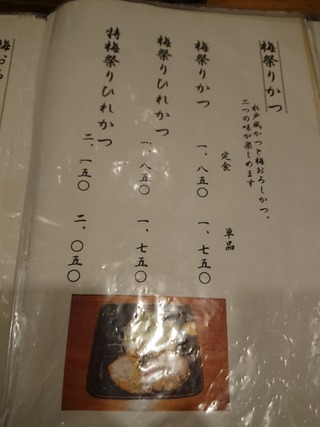 梅祭りかつ
水戸風かつと梅おろしかつ、
二つの味が楽しめます
定食
単品
梅祭りかつ
一、八五〇
一、七五〇
梅祭りひれかつ
一、八五〇
一、七五〇
特梅祭りひれかつ
二、一五〇
二、〇五〇
梅おろ